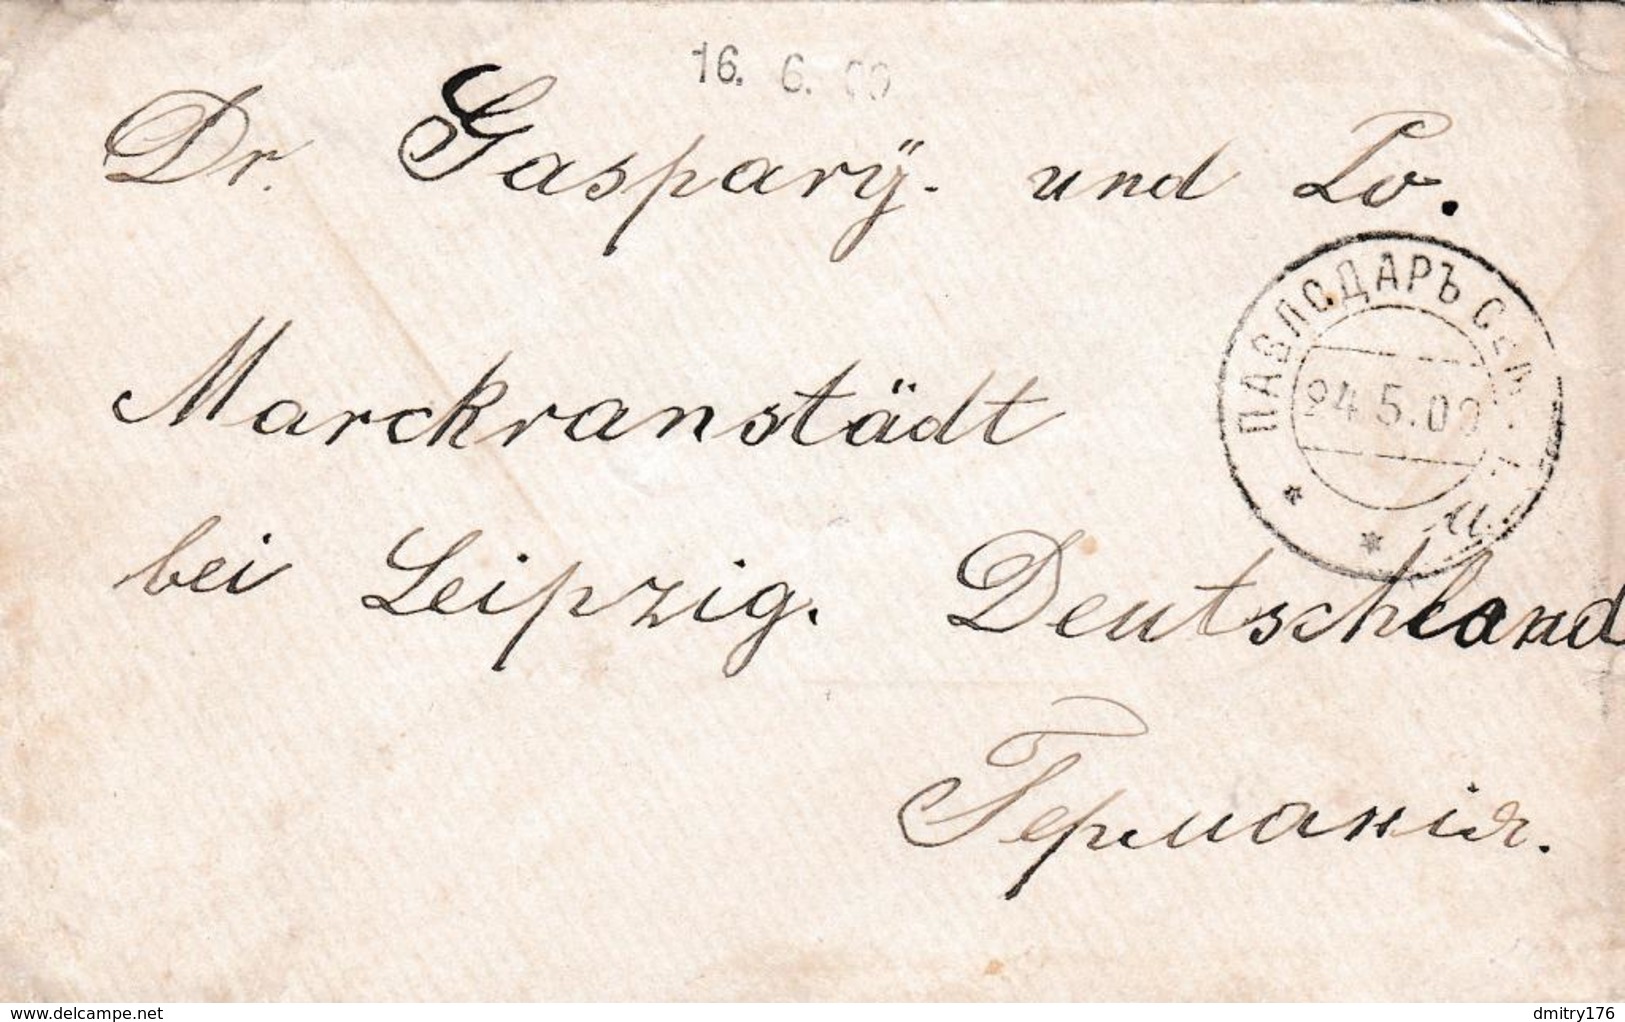 16. 6. 09
Dr. Gaspary. und Co.
ПАВЛОДАРЪ СЕМ.
24.5.09
Marckranstädt
bei Leipzig. Deutschland
Германія.
delcampe.net
dmitry176